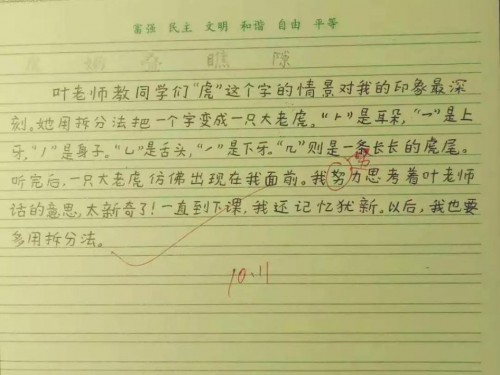 富强 民主 文明 和谐 自由 平等
瞧 隙
叶老师教同学们“虎”这个字的情景对我的印象最深
刻。她用拆分法把一个字变成一只大老虎。“⺊”是耳朵,“㇖”是上
牙,“丿”是身子。“乚”是舌头,“㇀”是下牙。“几”则是一条长长的虎尾。
听完后,一只大老虎仿佛出现在我面前。我努力思考着叶老师
话的意思,太新奇了!一直到下课,我还记忆犹新。以后,我也要
多用拆分法。
10.11